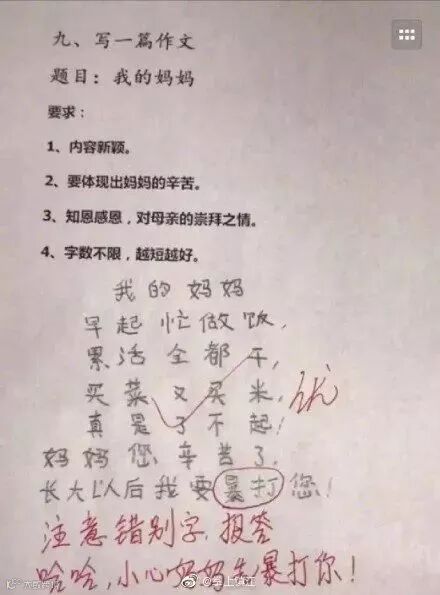 九、写一篇作文
题目：我的妈妈
要求：
1、内容新颖。
2、要体现出妈妈的辛苦。
3、知恩感恩，对母亲的崇拜之情。
4、字数不限，越短越好。
我的妈妈
早起忙做饭，
累活全都干，
买菜又买米，
优
真是了不起！
妈妈您辛苦了，
长大以后我要暴打您！
注意错别字，报答
哈哈，小心妈妈先暴打你！
@掌上镇江